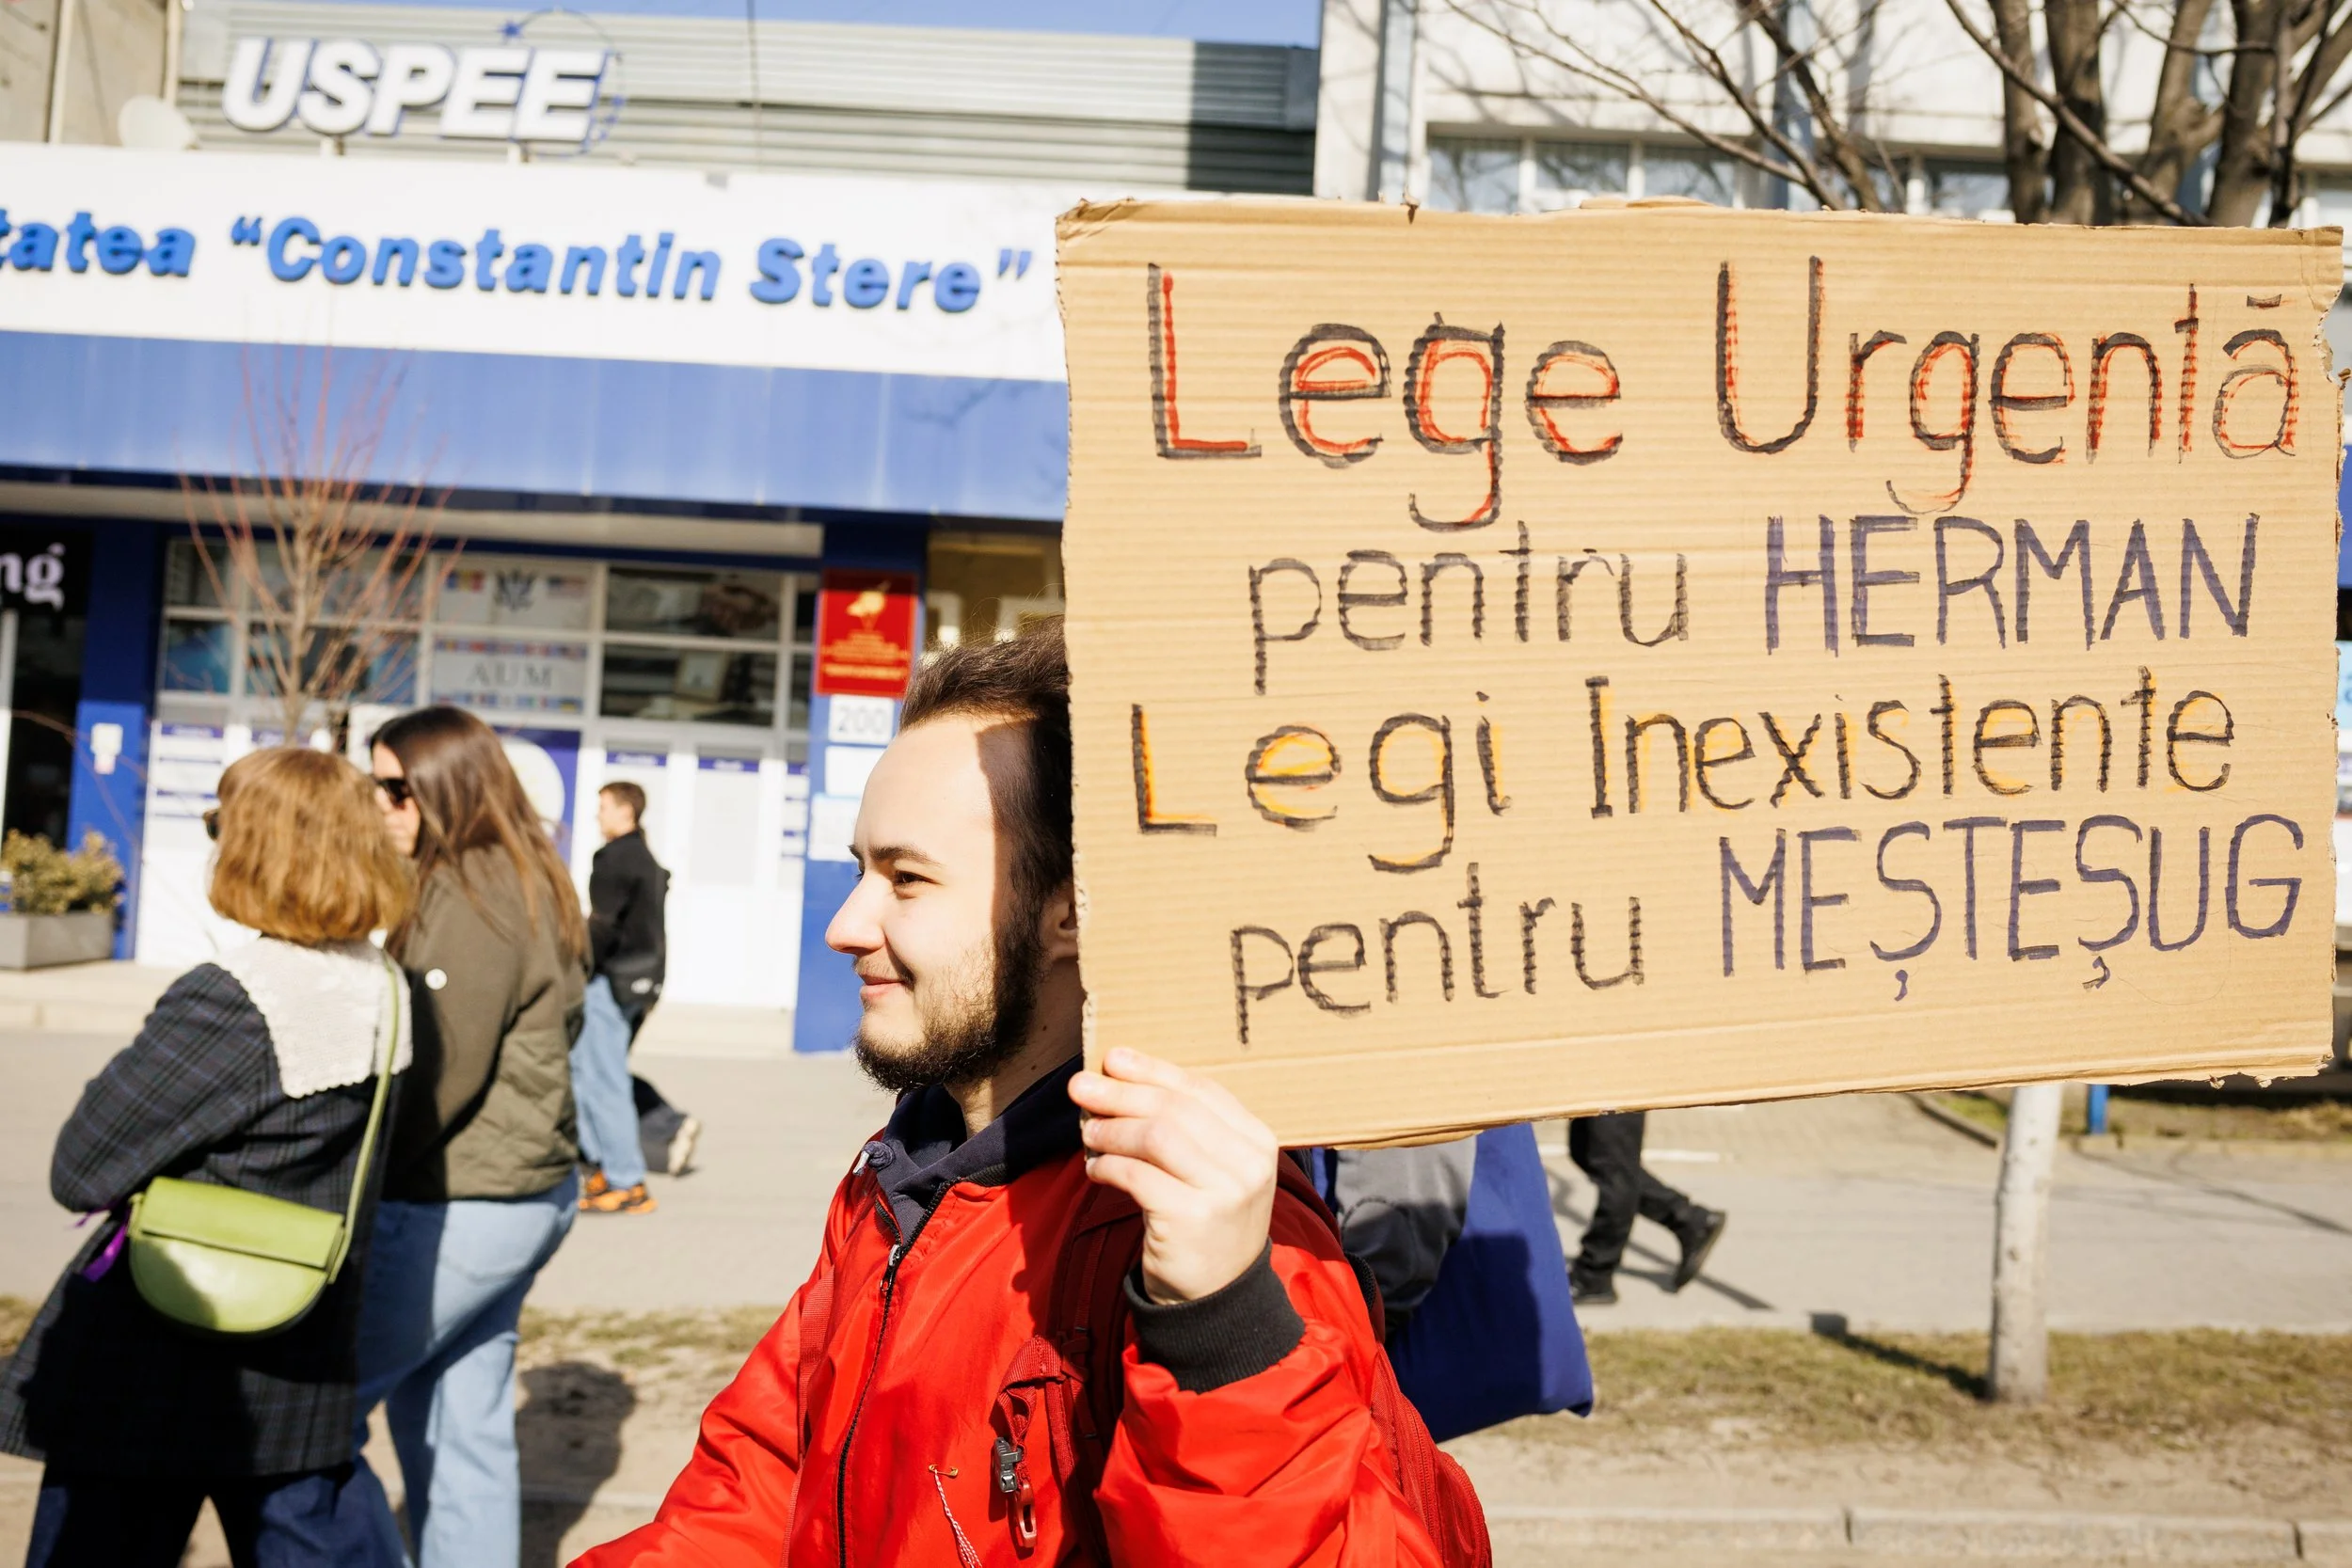 USPEE
tatea “Constantin Stere”
ng
AUM
200
Lege Urgentă
pentru HERMAN
Legi Inexistente
pentru MEȘTEȘUG